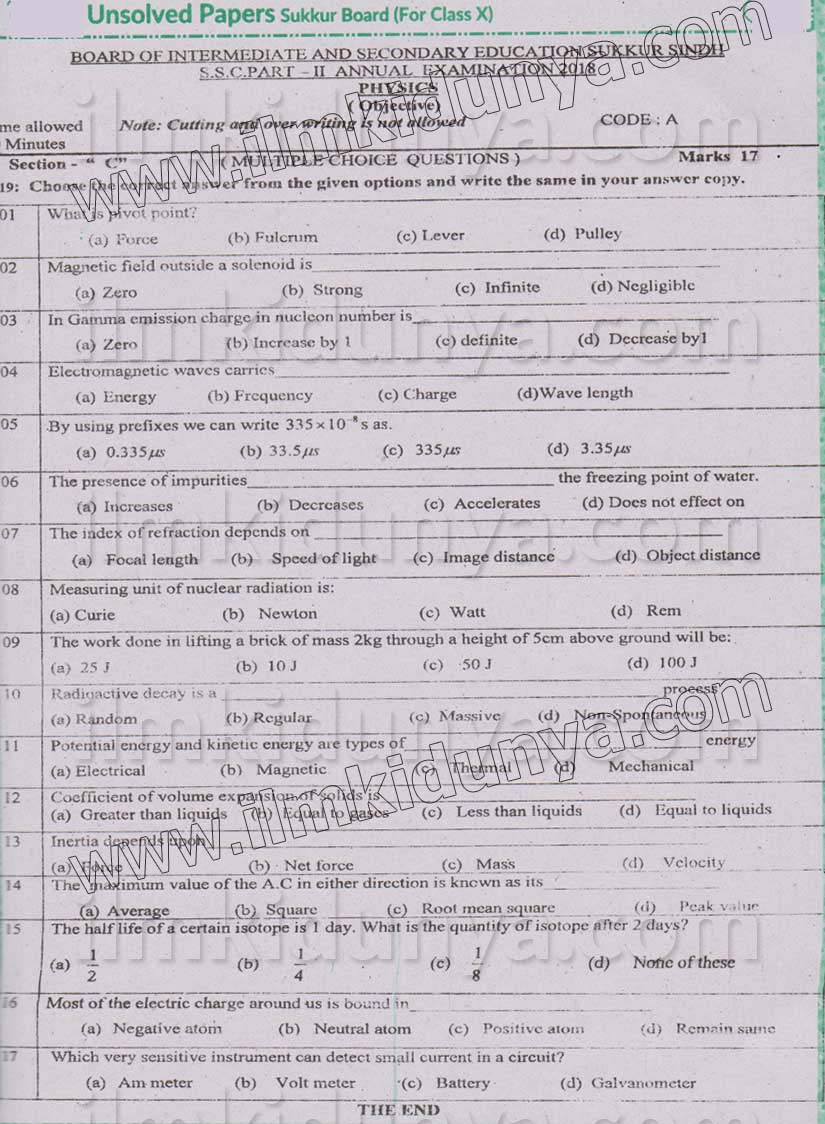 Unsolved Papers Sukkur Board (For Class X)
BOARD OF INTERMEDIATE AND SECONDARY EDUCATION SUKKUR SINDH
S.S.C.PART - II ANNUAL EXAMINATION 2018
PHYSICS
( Objective)
me allowed Note: Cutting and over writing is not allowed CODE : A
Minutes
Section - “ C” ( MULTIPLE CHOICE QUESTIONS ) Marks 17
19: Choose the correct answer from the given options and write the same in your answer copy.
01 What is pivot point?
(a) Force (b) Fulcrum (c) Lever (d) Pulley
02 Magnetic field outside a solenoid is
(a) Zero (b) Strong (c) Infinite (d) Negligible
03 In Gamma emission charge in nucleon number is
(a) Zero (b) Increase by 1 (c) definite (d) Decrease by1
04 Electromagnetic waves carries
(a) Energy (b) Frequency (c) Charge (d)Wave length
05 By using prefixes we can write 335×10⁻⁸ s as.
(a) 0.335μs (b) 33.5μs (c) 335μs (d) 3.35μs
06 The presence of impurities the freezing point of water.
(a) Increases (b) Decreases (c) Accelerates (d) Does not effect on
07 The index of refraction depends on
(a) Focal length (b) Speed of light (c) Image distance (d) Object distance
08 Measuring unit of nuclear radiation is:
(a) Curie (b) Newton (c) Watt (d) Rem
09 The work done in lifting a brick of mass 2kg through a height of 5cm above ground will be:
(a) 25 J (b) 10 J (c) 50 J (d) 100 J
10 Radioactive decay is a process
(a) Random (b) Regular (c) Massive (d) Non-Spontaneous
11 Potential energy and kinetic energy are types of energy
(a) Electrical (b) Magnetic (c) Thermal (d) Mechanical
12 Coefficient of volume expansion of solids is
(a) Greater than liquids (b) Equal to gases (c) Less than liquids (d) Equal to liquids
13 Inertia depends upon
(a) Force (b) Net force (c) Mass (d) Velocity
14 The maximum value of the A.C in either direction is known as its
(a) Average (b) Square (c) Root mean square (d) Peak value
15 The half life of a certain isotope is 1 day. What is the quantity of isotope after 2 days?
(a) 1/2 (b) 1/4 (c) 1/8 (d) None of these
16 Most of the electric charge around us is bound in
(a) Negative atom (b) Neutral atom (c) Positive atom (d) Remain same
17 Which very sensitive instrument can detect small current in a circuit?
(a) Am meter (b) Volt meter (c) Battery (d) Galvanometer
THE END
www.ilmkidunya.com
www.ilmkidunya.com
ilmkidunya.com
ilmkidunya.com
ilmkidunya.com
ilmkidunya.com
ilmkidunya.com